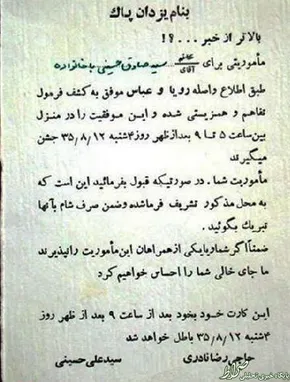 بنام یزدان پاک
بالاتر از خبر ...؟!
مأموریتی برای خانم آقای سید صادق حسینی با خانواده
طبق اطلاع واصله رویا و عباس موفق به کشف فرمول
تفاهم و همزیستی شده و این موفقیت را در منزل
بین ساعت ۵ تا ۹ بعدازظهر روز ۴شنبه ۳۵/۸/۱۲ جشن
میگیرند
مأموریت شما . در صورتیکه قبول بفرمائید این است که
به محل مذکور تشریف فرما شده وضمن صرف شام بآنها
تبریک بگوئید .
ضمناً اگر شما یا یکی از همراهان این مأموریت را نپذیرند
ما جای خالی شما را احساس خواهیم کرد
این کارت خود بخود بعد از ساعت ۹ بعد از ظهر روز
۴شنبه ۳۵/۸/۱۲ باطل خواهد شد
حاجی رضا نادری
سید علی حسینی